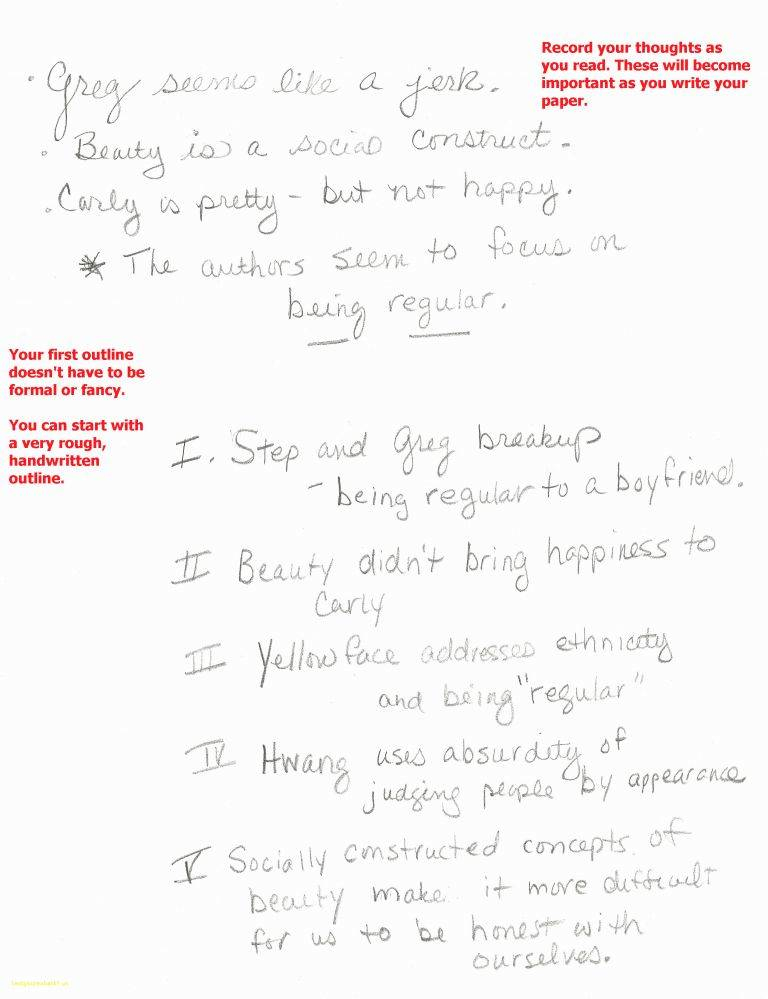 Record your thoughts as
you read. These will become
important as you write your
paper.
· Greg seems like a jerk.
· Beauty is a social construct.
· Carly is pretty - but not happy.
* The authors seem to focus on
being regular.
Your first outline
doesn't have to be
formal or fancy.
You can start with
a very rough,
handwritten
outline.
I. Step and Greg breakup
- being regular to a boyfriend.
II Beauty didn't bring happiness to
Carly
III Yellow face addresses ethnicity
and being "regular"
IV Hwang uses absurdity of
judging people by appearance
V Socially constructed concepts of
beauty make it more difficult
for us to be honest with
ourselves.